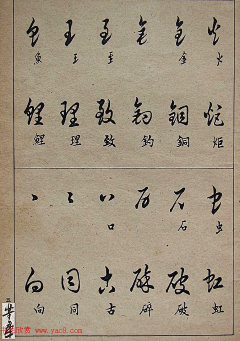 火 火 炬 炬
金 金 銅 銅
金 釣 釣
至 至 致 致
王 王 理 理
魚 魚 鯉 鯉
虫 虫 虹 虹
石 石 破 破
石 碎 碎
口 古 古
同 同
向 向
www.yac8.com